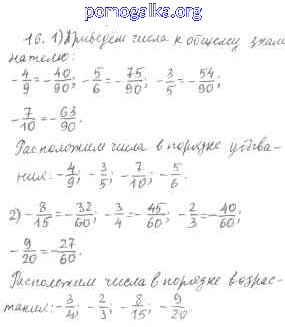 pomogalka.org
16. 1) Приведём числа к общему знаме-
нателю:
-4/9 = -40/90; -5/6 = -75/90; -3/5 = -54/90;
-7/10 = -63/90.
Расположим числа в порядке убыва-
ния: -4/9; -3/5; -7/10; -5/6.
2) -8/15 = -32/60; -3/4 = -45/60; -2/3 = -40/60;
-9/20 = -27/60.
Расположим числа в порядке возрас-
тания: -3/4; -2/3; -8/15; -9/20.